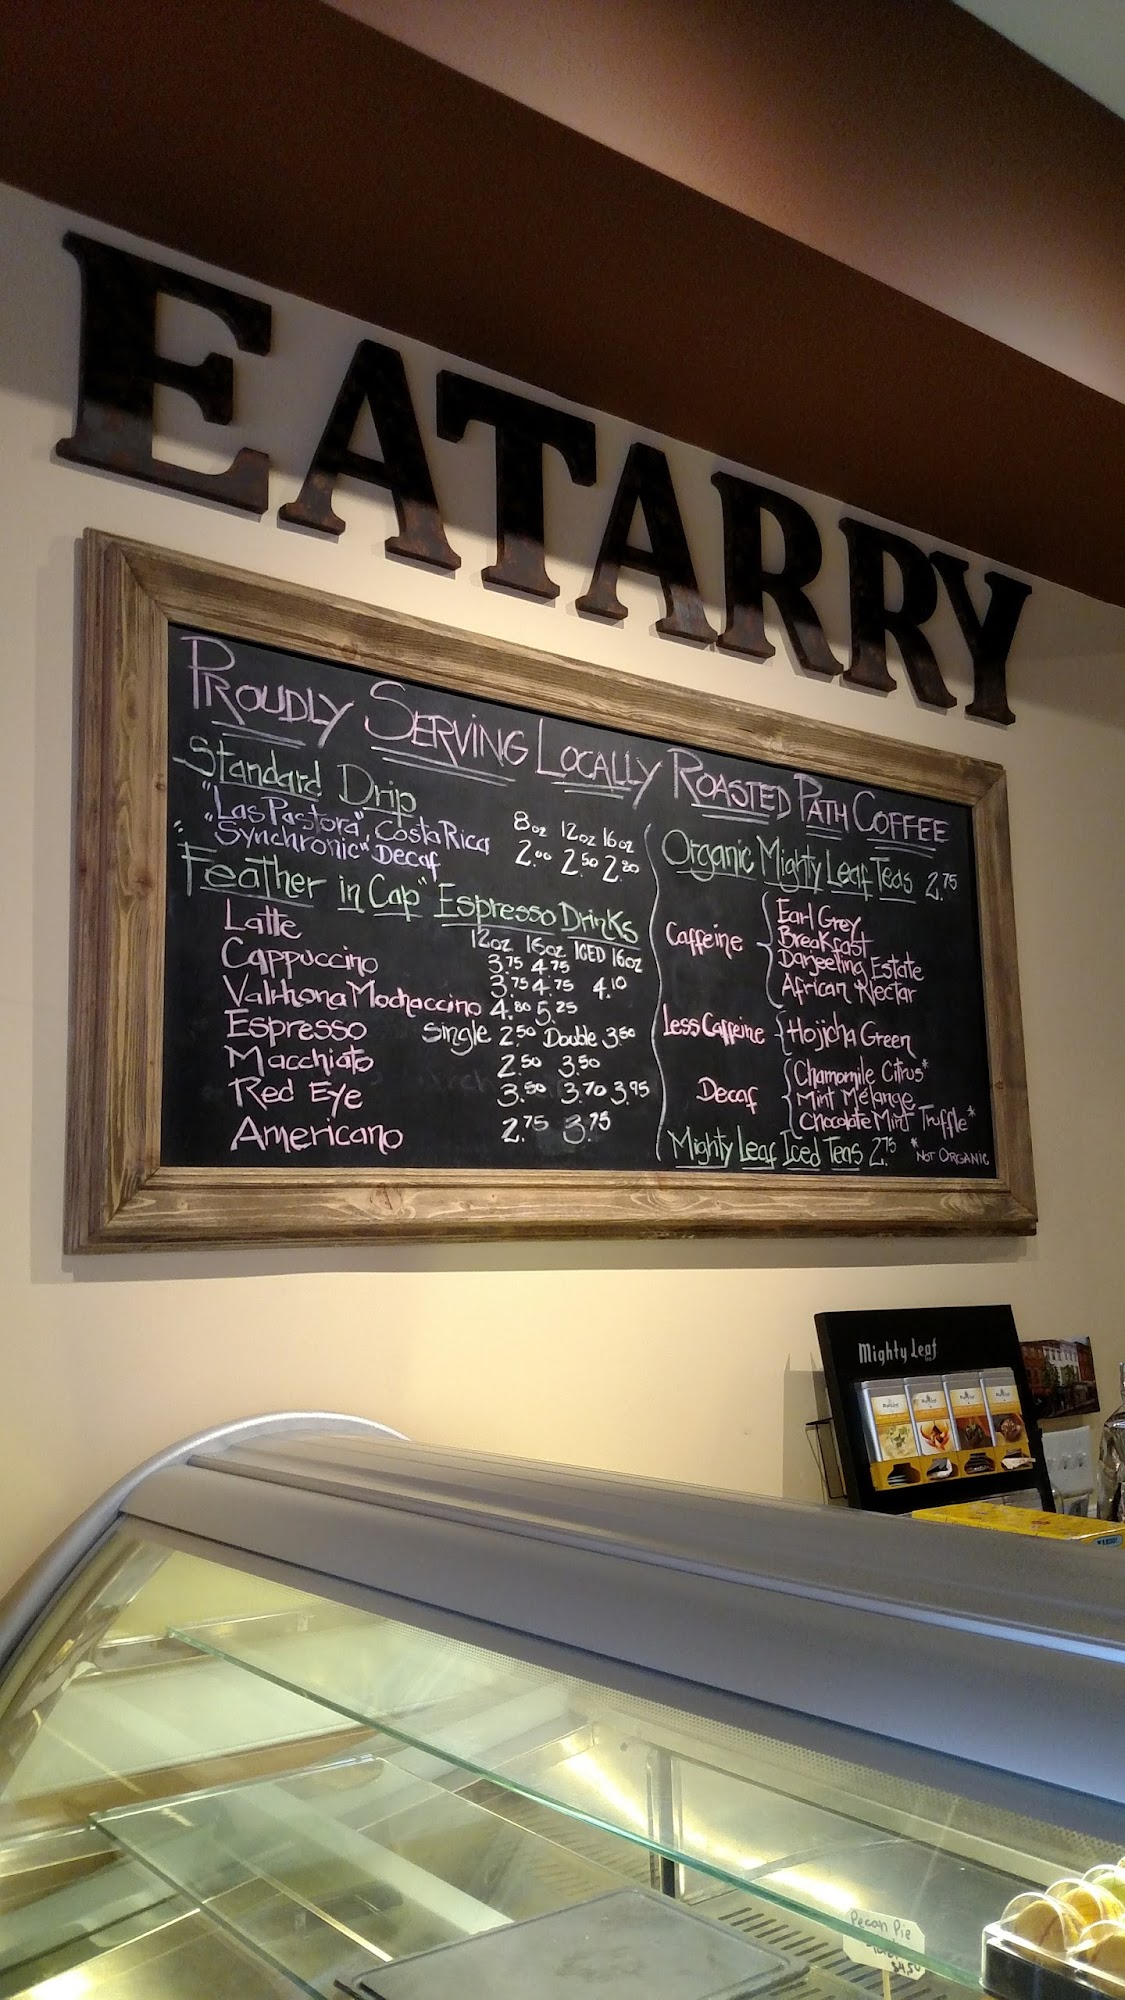 EATARRY
PROUDLY SERVING LOCALLY ROASTED PATH COFFEE
Standard Drip
"Las Pastora", Costa Rica
"Synchronic" Decaf
8oz 12oz 16oz
2.00 2.50 2.80
"Feather in Cap" Espresso Drinks
12oz 16oz ICED 16oz
Latte 3.75 4.75
Cappuccino 3.75 4.75 4.10
Valrhona Mochaccino 4.80 5.25
Espresso Single 2.50 Double 3.50
Macchiato 2.50 3.50
Red Eye 3.50 3.70 3.95
Americano 2.75 3.75
Organic Mighty Leaf Teas 2.75
Caffeine
Earl Grey
Breakfast
Darjeeling Estate
African Nectar
Less Caffeine
Hojicha Green
Decaf
Chamomile Citrus*
Mint Mélange
Chocolate Mint Truffle*
Mighty Leaf Iced Teas 2.75
*NOT ORGANIC
Mighty Leaf
Pecan Pie
$4.50